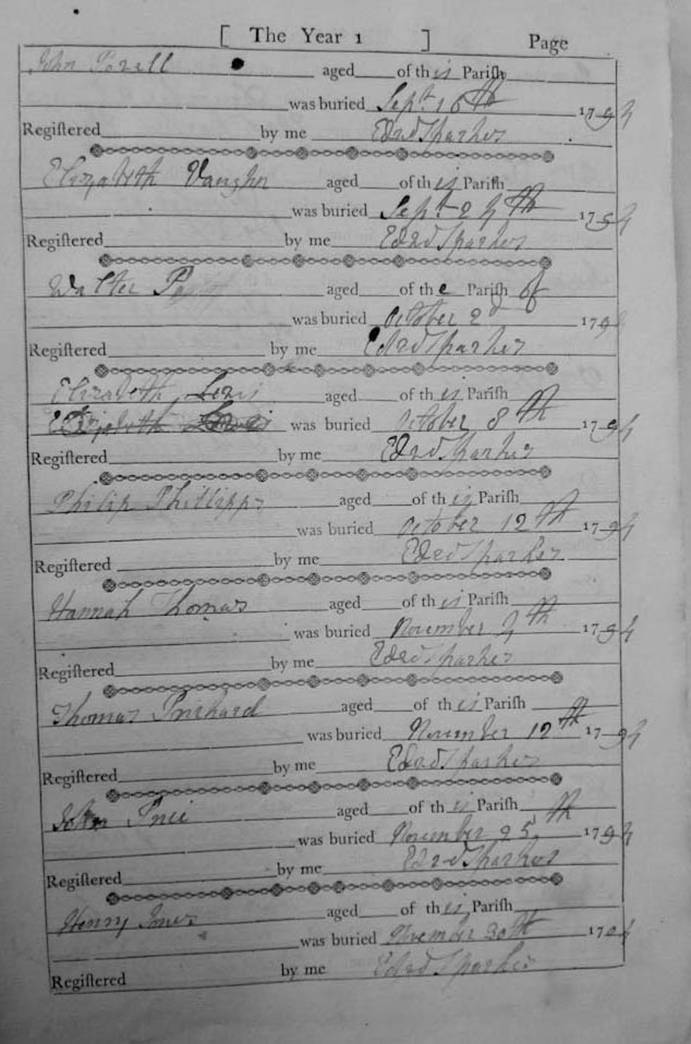 [ The Year 1 ] Page
John Powell aged of this Parish
was buried Sept 16th 1794
Registered by me Edwd Sparkes
Elizabeth Vaughn aged of this Parish
was buried Sept 24th 1794
Registered by me Edwd Sparkes
Walter aged of the Parish of
was buried October 2d 179
Registered by me Edwd Sparkes
Elizabeth Lewis aged of this Parish
Elizabeth Lewis was buried October 8th 1794
Registered by me Edwd Sparkes
Philip Phillipps aged of this Parish
was buried October 12th 1794
Registered by me Edwd Sparkes
Hannah Thomas aged of this Parish
was buried November 4th 1794
Registered by me Edwd Sparkes
Thomas Prichard aged of this Parish
was buried November 12th 1794
Registered by me Edwd Sparkes
John Price aged of this Parish
was buried November 25th 1794
Registered by me Edwd Sparkes
Henry Jones aged of this Parish
was buried November 30th 1794
Registered by me Edwd Sparkes